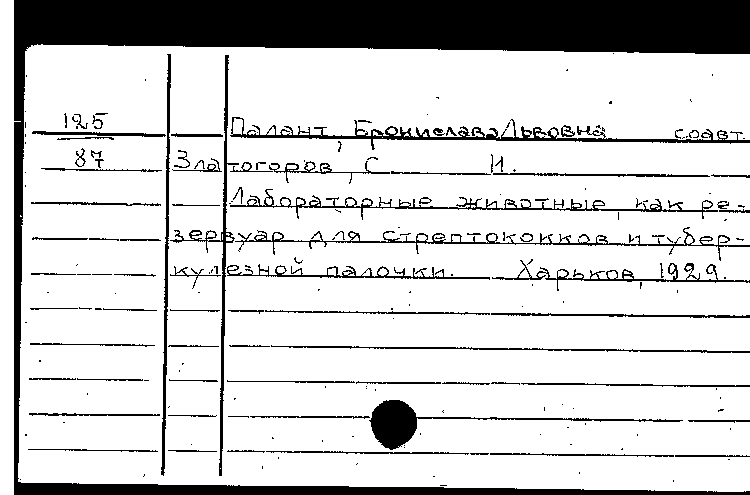 125
87
Палант, Бронислава Львовна соавт.
Златогоров, С И.
Лабораторные животные, как ре-
зервуар для стрептококков и тубер-
кулезной палочки. Харьков, 1929.